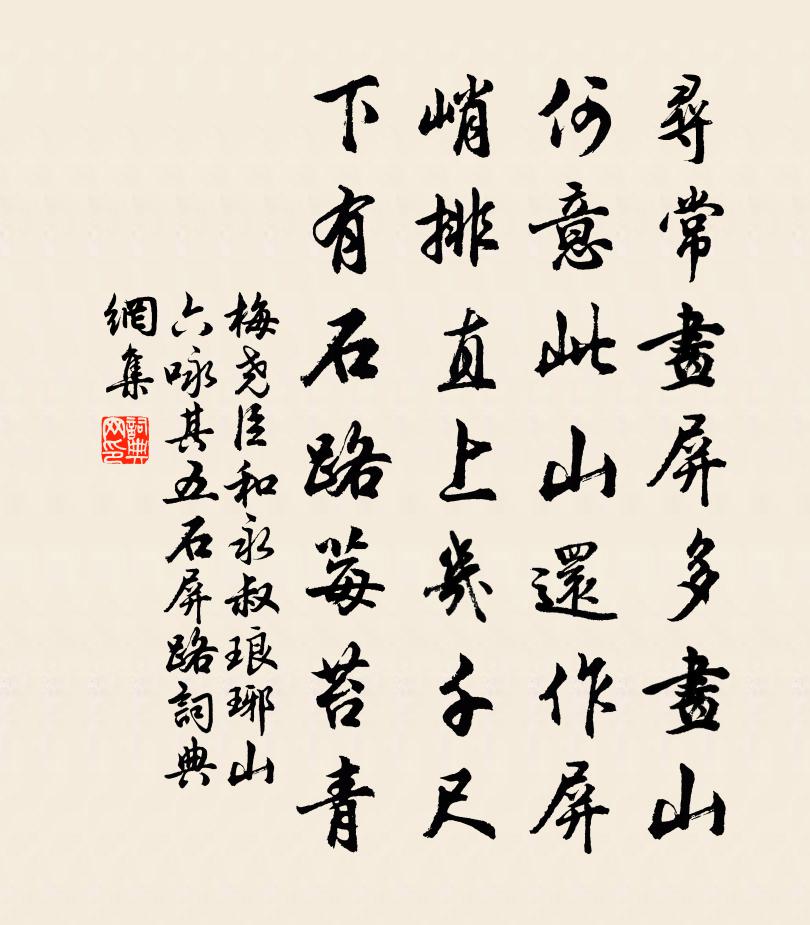 尋常畫屏多畫山
何意此山還作屏
峭排直上幾千尺
下有石路莓苔青
梅尧臣和永叔琅琊山
六咏其五石屏路詞典
網集
詞典网印